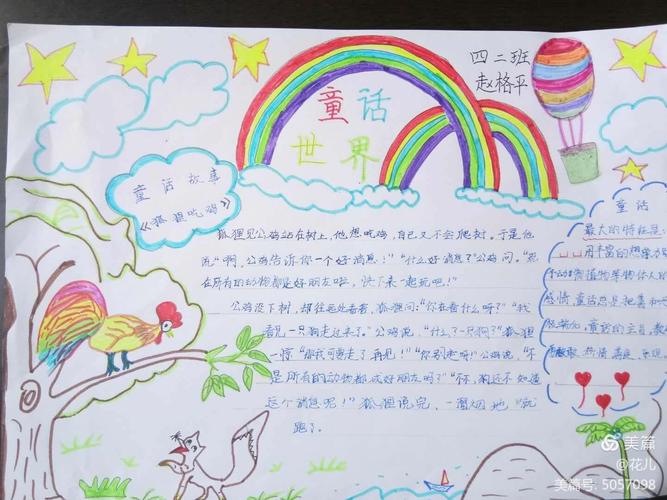 四二班
赵格平
童话
世界
童话故事
《狐狸吃鸡》
狐狸见公鸡站在树上,他想吃鸡,自己又不会爬树,于是他
说"啊,公鸡告诉你一个好消息!""什么好消息了"公鸡问,"现
在所有的动物都是好朋友啦,快下来一起玩吧!"
公鸡没下树,却往远处看看,狐狸问:"你在看什么呀?""我
看见一只狗走过来了。"公鸡说,"什么了一只狗?"狐狸
一惊"那我可要走了再见!""你别走呀!"公鸡说,"不
是所有的动物都成好朋友吗?""不,狗还不知道
这个消息呢!"狐狸说完,一溜烟地"就
跑了。
童话
最大的特征是:
用丰富的想象力
动植物等物人
感情,童话总是把真和
童话的主旨,教
热情
美篇
@花儿
美篇号: 5057098